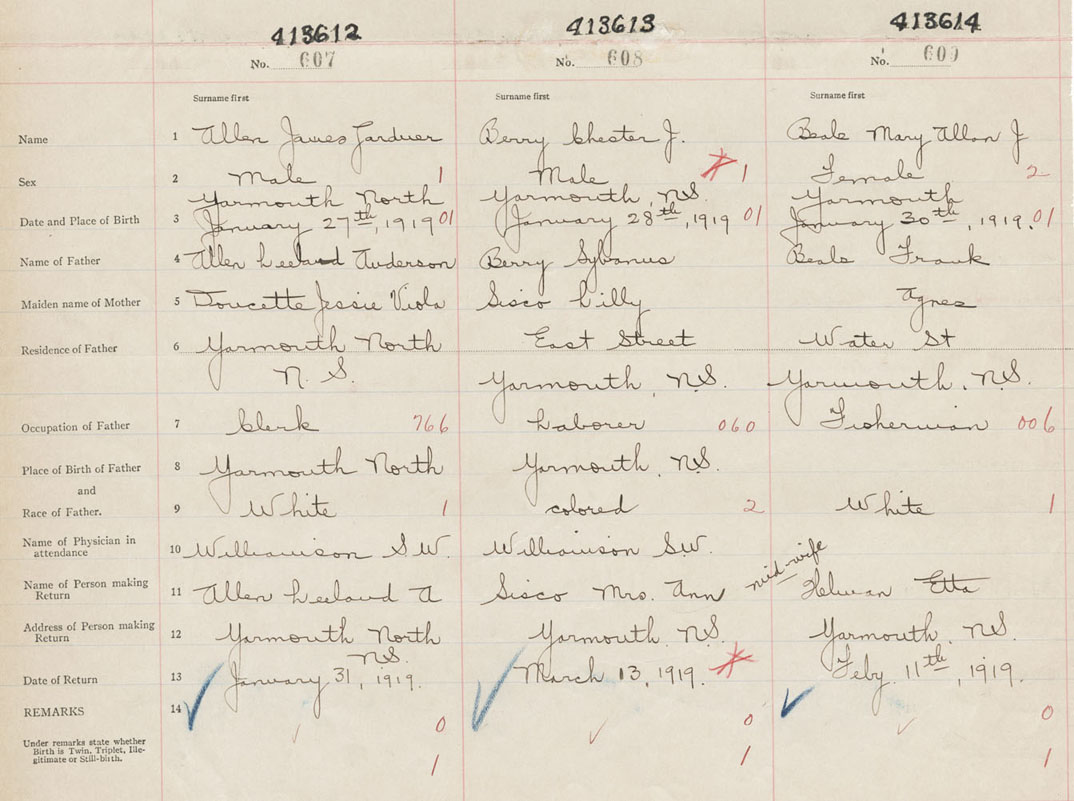 413612 413613 413614
No. 607 No. 608 No. 609
Surname first Surname first Surname first
Name 1 Allen James Gardner Berry Chester J. Beals Mary Allan J
Sex 2 Male 1 Male 1 Female 2
Yarmouth North Yarmouth, N.S. Yarmouth
Date and Place of Birth 3 January 27th, 1919 01 January 28th, 1919 01 January 30th, 1919. 01
Name of Father 4 Allen Leeland Anderson Berry Sylvanus Beals Frank
Maiden name of Mother 5 Doucette Jessie Viola Sisco Lilly Agnes
Residence of Father 6 Yarmouth North East Street Water St
N. S. Yarmouth, N.S. Yarmouth, N.S.
Occupation of Father 7 Clerk 766 Laborer 060 Fisherman 006
Place of Birth of Father 8 Yarmouth North Yarmouth, N.S.
and
Race of Father. 9 White 1 colored 2 White 1
Name of Physician in
attendance 10 Williamson S.W. Williamson S.W.
mid-wife
Name of Person making
Return 11 Allen Leeland A Sisco Mrs. Ann Etta
Address of Person making
Return 12 Yarmouth North Yarmouth, N.S. Yarmouth, N.S.
N.S.
Date of Return 13 January 31, 1919. March 13, 1919. Feby. 11th, 1919.
REMARKS 14 0 0 0
Under remarks state whether
Birth is Twin, Triplet, Ille-
gitimate or Still-birth. 1 1 1